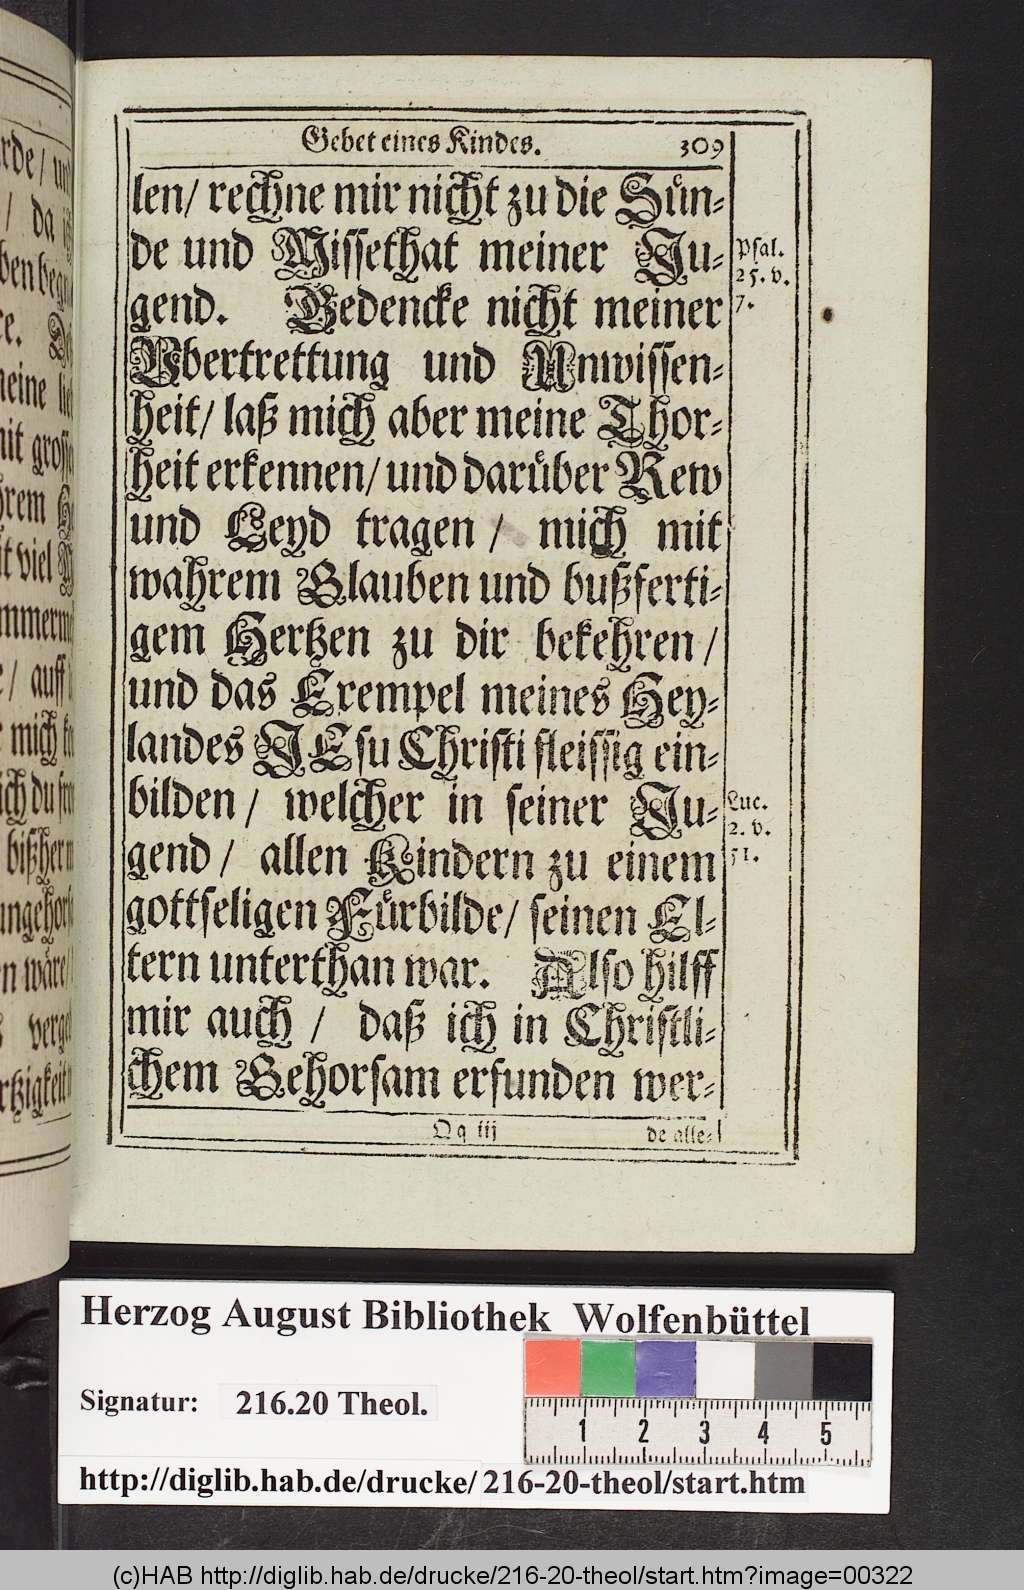 Gebet eines Kindes. 309
len/ rechne mir nicht zu die Sün-
de und Missethat meiner Ju-
gend. Gedencke nicht meiner
Vbertrettung und Unwissen-
heit/ laß mich aber meine Thor-
heit erkennen/ und darüber Rew
und Leyd tragen/ mich mit
wahrem Glauben und bußferti-
gem Hertzen zu dir bekehren/
und das Exempel meines Hey-
landes JEsu Christi fleissig ein-
bilden/ welcher in seiner Ju-
gend/ allen Kindern zu einem
gottseligen Fürbilde/ seinen El-
tern unterthan war. Also hilff
mir auch/ daß ich in Christli-
chem Gehorsam erfunden wer-
Qq iij de alle-
Psal.
25. v.
7.
Luc.
2. v.
51.
rde/
/ da
ce.
meine
mit
viel
auff
mich
ich du
bißher
en wäre/
Herzog August Bibliothek Wolfenbüttel
Signatur: 216.20 Theol.
1 2 3 4 5
http://diglib.hab.de/drucke/216-20-theol/start.htm
(c)HAB http://diglib.hab.de/drucke/216-20-theol/start.htm?image=00322